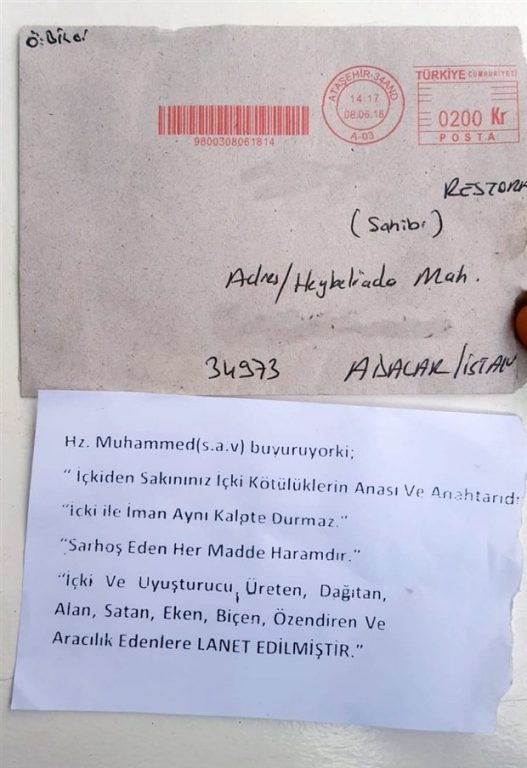 Ö. Bilgi
ATAŞEHİR-34AND
14:17
08.06.18
A-03
TÜRKİYE CUMHURİYETİ
0200 Kr
POSTA
9800308061814
RESTORA
(Sahibi)
Adres/Heybeliada Mah.
34973 ADALAR/İSTAN
Hz. Muhammed(s.a.v) buyuruyorki;
" İçkiden Sakınınız İçki Kötülüklerin Anası Ve Anahtarıdı
"İçki ile İman Aynı Kalpte Durmaz."
"Sarhoş Eden Her Madde Haramdır."
"İçki Ve Uyuşturucu, Üreten, Dağıtan,
Alan, Satan, Eken, Biçen, Özendiren Ve
Aracılık Edenlere LANET EDİLMİŞTİR."